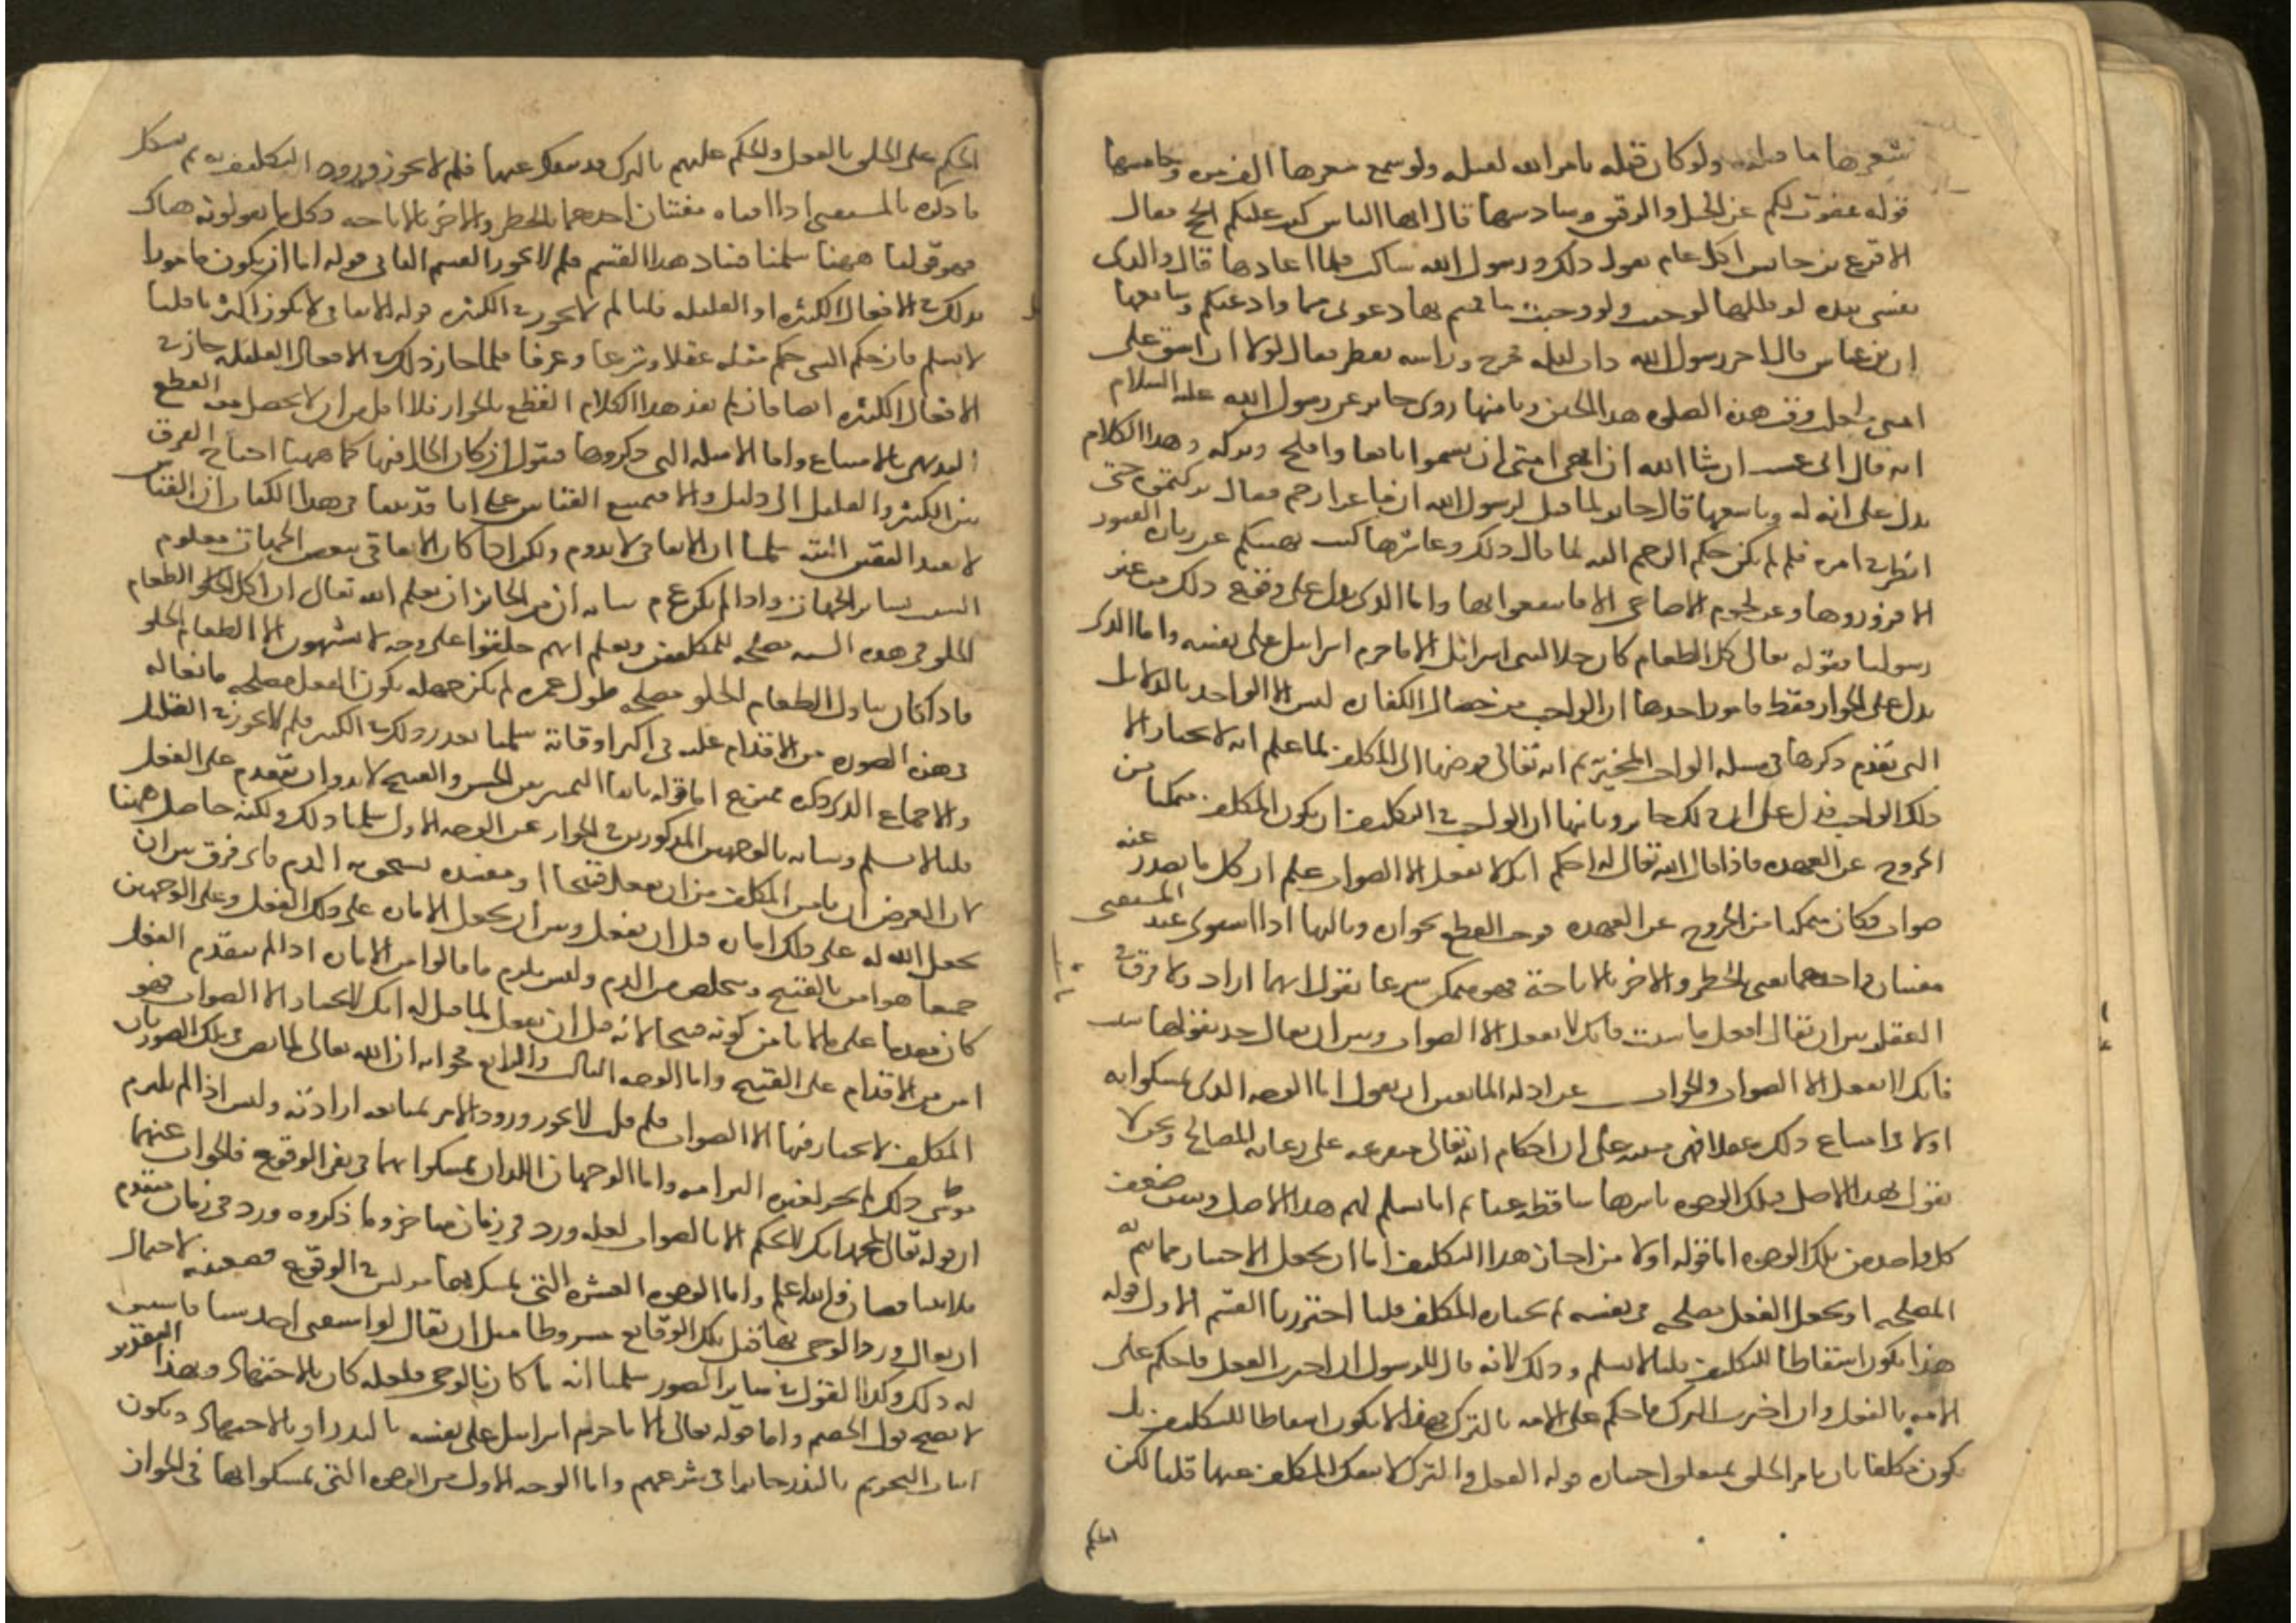 شعرها ما قتلته ولو كان قتله بامر الله لقتله ولو سمع شعرها الف مره وخامسها
قوله عفوت لكم عن الخيل والرقيق وسادسها قال ايها الناس كتب عليكم الحج فقال
الاقرع بن حابس اكل عام يقول ذلك ورسول الله ساكت فلما اعادها قال والذي
نفسي بيده لو قلتها لوجبت ولو وجبت ما قمتم بها دعوني ما وادعتكم وسابعها
ان بن عباس قال اخر رسول الله ذات ليله فخرج وراسه يقطر فقال لولا ان اشق على
امتي لجعلت وقت هذه الصلوه هذا الحين وثامنها روى جابر عن رسول الله عليه السلام
انه قال اني عشت ان شا الله ان انهى امتي ان يسموا نافعا وافلح وبركه وهذا الكلام
يدل على انه له وتاسعها قال جابر لما قيل لرسول الله ان ماعزا رجم فقال تركتموه حتى
انظر في امره فلو لم يكن حكم الرجم اليه لما قال ذلك وعاشرها كنت نهيتكم عن زياره القبور
الا فزوروها وعن لحوم الاضاحي الا فانتفعوا بها واما الذي يدل على وقوع ذلك من غير
رسولنا فقوله تعالى كل الطعام كان حلا لبني اسرائيل الا ما حرم اسرائيل على نفسه واما الذي
يدل على الجواز فقط فامور احدها ان الواجب من خصال الكفاره ليس الا الواحد بالدلايل
التي تقدم ذكرها في مسله الواجب المخير ثم انه تعالى فوضها الى المكلف لما علم انه لا يختار الا
ذلك الواجب فدل على ان ذلك جايز وثانيها ان الواجب في التكليف ان يكون المكلف متمكنا من
الخروج عن العهده فاذا قال الله تعالى له احكم انك لا تفعل الا الصواب علم ان كل ما يصدر عنه
صواب فكان متمكنا من الخروج عن العهده فوجب القطع بجوازه وثالثها اذا استوى عند المستفتي
مفتيان واحدهما يفتي بالحظر والاخر بالاباحة فهو متمكن شرعا بقول ايهما اراد ولا فرق في
العقل بين ان يقال افعل ما شيت فانك لا تفعل الا الصواب وبين ان يقال خذ بقول ايهما شيت
فانك لا تفعل الا الصواب والجواب عن ادله المانعين ان نقول اما الوجه الذي تمسكوا به
اولا في امتناع ذلك عقلا فهي مبنيه على ان احكام الله تعالى متفرعه على رعايه المصالح ونحن لا
نقول بهذا الاصل فتلك الوجوه باسرها ساقطه عنا ثم انا نسلم لهم هذا الاصل ونبين ضعف
كل واحد من تلك الوجوه اما قوله اولا من اجاز هذا التكليف اما ان يجعل الاختيار مما يتم به
المصلحه او يجعل الفعل مصلحه في نفسه ثم يختاره المكلف قلنا اخترنا القسم الاول قوله
هذا يكون اسقاطا للتكليف قلنا لا نسلم وذلك لانه قال للرسول ان اخترت الفعل فاحكم على
الامه بالفعل وان اخترت الترك فاحكم على الامه بالترك فهذا لا يكون اسقاطا للتكليف بل
يكون مكلفا بان يامر الخلق بمتعلق اختياره قوله الفعل والترك لا ينفك المكلف عنهما قلنا لكن
الحكم
الحكم على الخلق بالفعل والحكم عليهم بالترك قد ينفك عنهما فلم لا يجوز ورود التكليف به ثم يشكل
ما ذكره بالمستفتي اذا افتاه مفتيان احدهما بالحظر والاخر بالاباحه وكل ما يقولونه هناك
فهو قولنا ههنا سلمنا فساد هذا القسم فلم لا يجوز القسم الثاني قوله اما ان يكون ماخوذا
بذلك في الافعال الكثيره او القليله قلنا لم لا يجوز في الكثره قوله الاتفاقي لا يكون اكثريا قلنا
لا نسلم فان حكم الشي حكم مثله عقلا وشرعا وعرفا فلما جاز ذلك في الافعال القليله جاز في
الافعال الكثيره ايضا فان لم يفد هذا الكلام القطع بالجواز فلا اقل من ان لا يحصل معه القطع
البديهي بالامتناع واما الامثله التي ذكروها فنقول ان كان الحال فيها كما ههنا احتاج الفرق
بين الكثير والقليل الى دليل والا فيمتنع القياس على انا قد بينا في هذا الكتاب ان القياس
لا يفيد اليقين البته سلمنا ان الاتفاقي لا يدوم ولكن اذا كان الاتفاقي ببعض الجهات معلوم
السبب بساير الجهات واذا لم يكن ع م بيانه ان من الجايز ان يعلم الله تعالى ان اكل الطعام
الحلو في هذه السنه مصلحه للمكلفين ويعلم انهم خلقوا على وجه لا يشتهون الا الطعام الحلو
فاذا كان تناول الطعام الحلو مصلحه طول عمره لم يكن جهله بكون الفعل مصلحه مانعا له
في هذه الصوره من الاقدام عليه في اكثر اوقاته سلمنا تعذر ذلك في الكثير فلم لا يجوز في القليل
والاجماع الذي ذكره ممنوع اما قوله ثانيا التمييز بين الحسن والقبيح لا بد وان يتقدم على الفعل
قلنا لا نسلم وبيانه بالوجهين المذكورين في الجواز عن الوجه الاول سلمنا ذلك ولكنه حاصل ههنا
لان الغرض ان يامن المكلف من ان يفعل قبيحا او مفسده يستحق به الذم فاي فرق بين ان
يجعل الله له على ذلك اماره قبل ان يفعل وبين ان يجعل الاماره على ذلك الفعل وعلى الوجهين
جميعا هو امن بالقبيح ويتخلص من الذم وليس يلزم ما قالوا من الاماره اذا لم يتقدم الفعل
كان مقدما على ما لا يامن كونه قبيحا لانه قبل ان يفعل لما قيل له انك لا تختار الا الصواب فهو
امن من الاقدام على القبيح واما الوجه الثالث والرابع فجوابه ان الله تعالى لما نص في تلك الصور بان
المكلف لا يختار فيها الا الصواب فلم قلت لا يجوز ورود الامر بمتابعه ارادته وليس اذا لم يلزم
من ذلك لم يجز لغيره التزامه واما الوجهان اللذان تمسكوا بهما في نفي الوقوع فالجواب عنهما
ان قوله تعالى للمجتهد انك لا تحكم الا بالصواب لعله ورد في زمان متاخر وما ذكروه ورد في زمان متقدم
فلا يتناقضان والله اعلم واما الوجوه العشره التي تمسك بها مويس في الوقوع فضعيفه لاحتمال
ان يقال ورد الوحي بها قبل تلك الوقايع مشروطا مثل ان يقال لو استثنى احد شيا فاستثن
له ذلك وكذا القول في ساير الصور سلمنا انه ما كان بالوحي فلعله كان بالاجتهاد وبهذا التقدير
لا يصح قول الخصم واما قوله تعالى الا ما حرم اسرائيل على نفسه بالنذر او بالاجتهاد ويكون
اثبات التحريم بالنذر جايزا في شرعهم واما الوجه الاول من الوجوه التي تمسكوا بها في الجواز